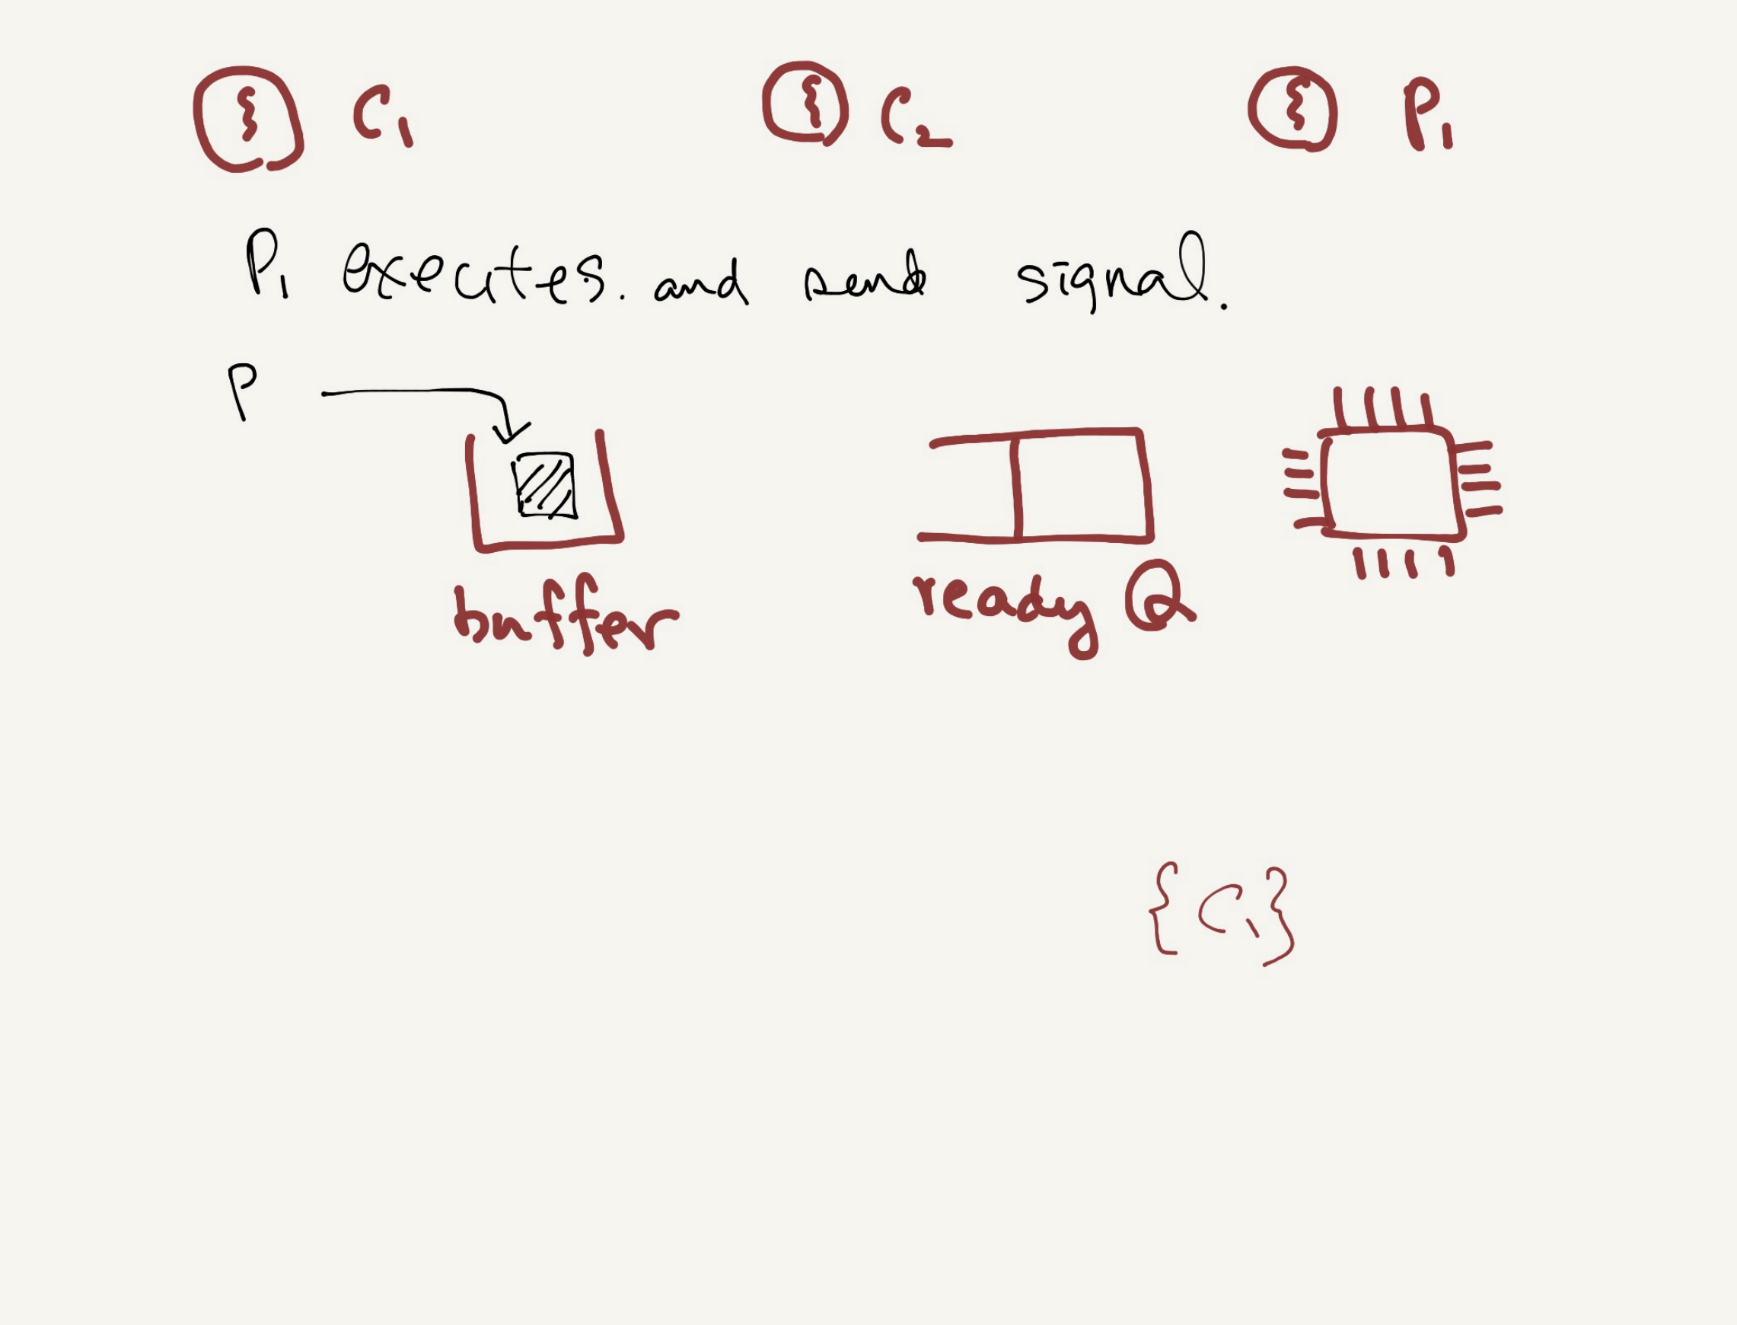 C₁ C₂ P₁
P₁ executes. and send signal.
P
buffer ready Q
{C₁}